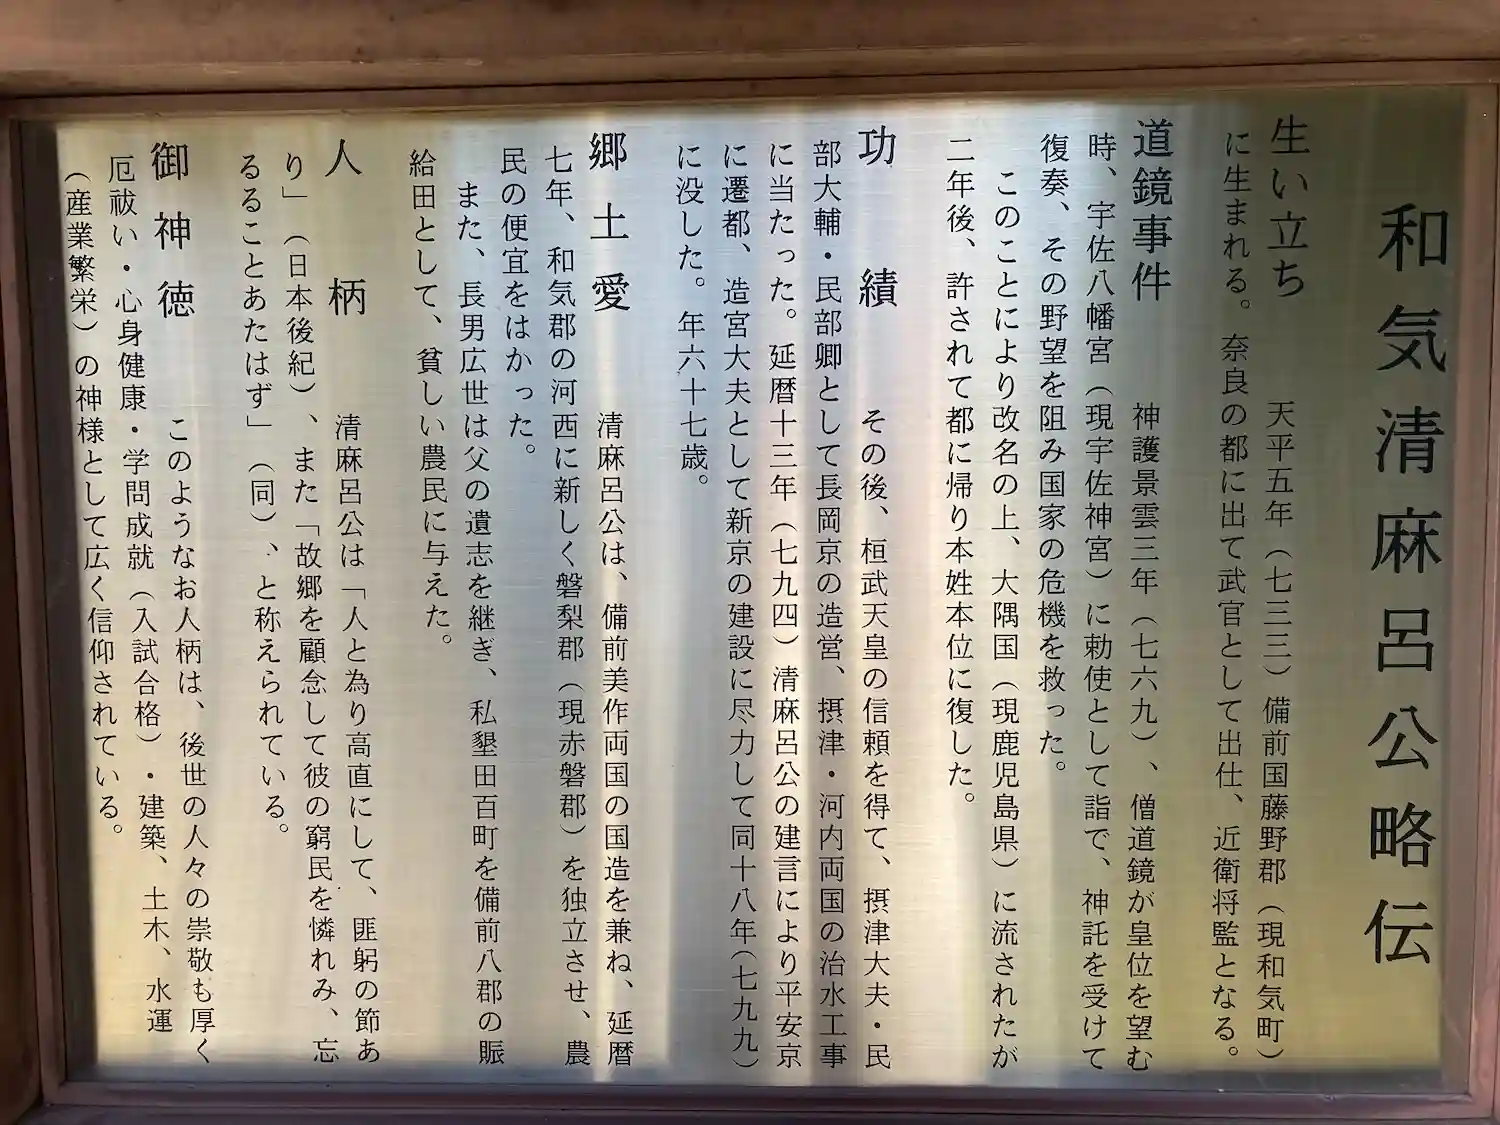 和気清麻呂公略伝
生い立ち　天平五年（七三三）備前国藤野郡（現和気町）
に生まれる。奈良の都に出て武官として出仕、近衛将監となる。
道鏡事件　神護景雲三年（七六九）、僧道鏡が皇位を望む
時、宇佐八幡宮（現宇佐神宮）に勅使として詣で、神託を受けて
復奏、その野望を阻み国家の危機を救った。
このことにより改名の上、大隅国（現鹿児島県）に流されたが
二年後、許されて都に帰り本姓本位に復した。
功績　その後、桓武天皇の信頼を得て、摂津大夫・民
部大輔・民部卿として長岡京の造営、摂津・河内両国の治水工事
に当たった。延暦十三年（七九四）清麻呂公の建言により平安京
に遷都、造宮大夫として新京の建設に尽力して同十八年（七九九）
に没した。年六十七歳。
郷土愛　清麻呂公は、備前美作両国の国造を兼ね、延暦
七年、和気郡の河西に新しく磐梨郡（現赤磐郡）を独立させ、農
民の便宜をはかった。
また、長男広世は父の遺志を継ぎ、私墾田百町を備前八郡の賑
給田として、貧しい農民に与えた。
人柄　清麻呂公は「人と為り高直にして、匪躬の節あ
り」（日本後紀）、また「故郷を顧念して彼の窮民を憐れみ、忘
るることあたはず」（同）、と称えられている。
御神徳　このようなお人柄は、後世の人々の崇敬も厚く
厄祓い・心身健康・学問成就（入試合格）・建築、土木、水運
（産業繁栄）の神様として広く信仰されている。